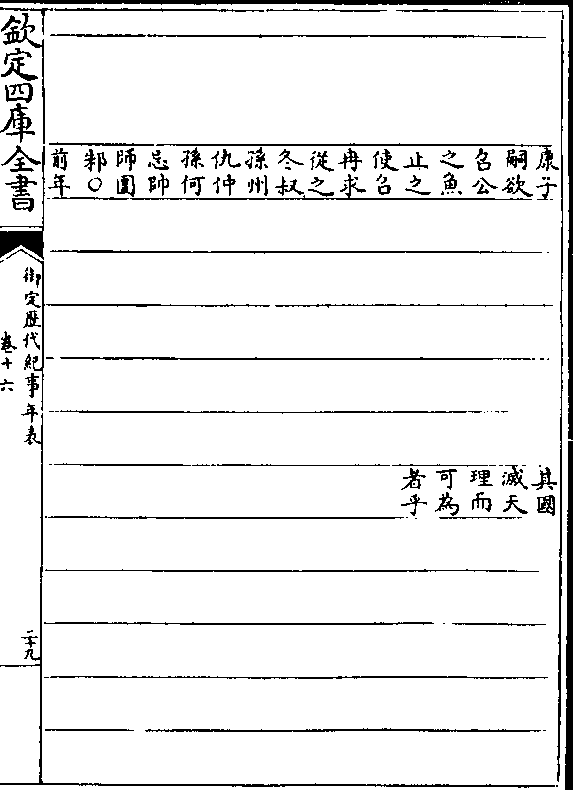 康子
嗣欲
召公
之魚
止之
使召
冉求
從之
冬叔
孫州
仇仲
孫何
忌帥
師圍
邾○
前年
其國
滅天
理而
可為
者乎
欽定四庫全書
御定歴代紀事年表
卷十六
二十九